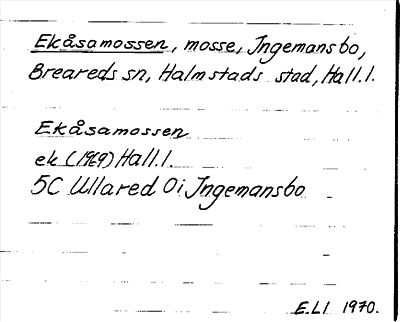 Ekåsamossen, mosse, Ingemansbo,
Breareds sn, Halmstads stad, Hall.l.
Ekåsamossen
ek (1969) Hall.l.
5C Ullared 0i Ingemansbo
E.LI 1970.